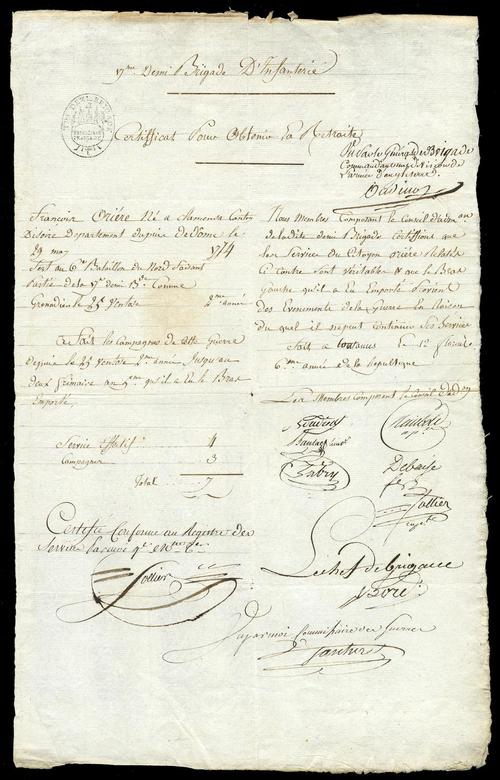 17me Demi Brigade D'Infanterie
Certifficat Pour Obtenir La Retraite
Vu Par le Général de Brigade
Commandant
L'armée D'angleterre
François Orière Né a Clemensa Canton
Disoire Departement dupuis de Dome le
29 may 1774
Sert au 6me Bataillon du Nord faisant
Partie de la 17e demi Bde Comme
Grenadier le 25 Ventose 2me année
a Fait les Campagnes de Cette Guerre
Depuis le 25 Ventose 2me année Jusqu'au
deux frimaire an 5me qu'il a Eu le Bras
Emporté
Service Effectif 4
Campagnes 3
Total 7
Certifié Conforme au Registre des
Services
Sollier
Nous Membres Composant le Conseil d'adm on
de la dite demi Brigade Certiffions que
les Services du Citoyen Orière Relatés
Ci Contre sont veritables & que le Bras
gauche qu'il a Eu Emporté Provient
des Evenements de la Guerre En Raison
du quel il ne peut Continuer Ses Services
Fait a Coutances le 12 floreal
6me année de la Republique
Les Membres Composant le Conseil d'adon
Fabry
Debaise
Sollier
Le Chef de Brigade
Par moi Commissaire des Guerres